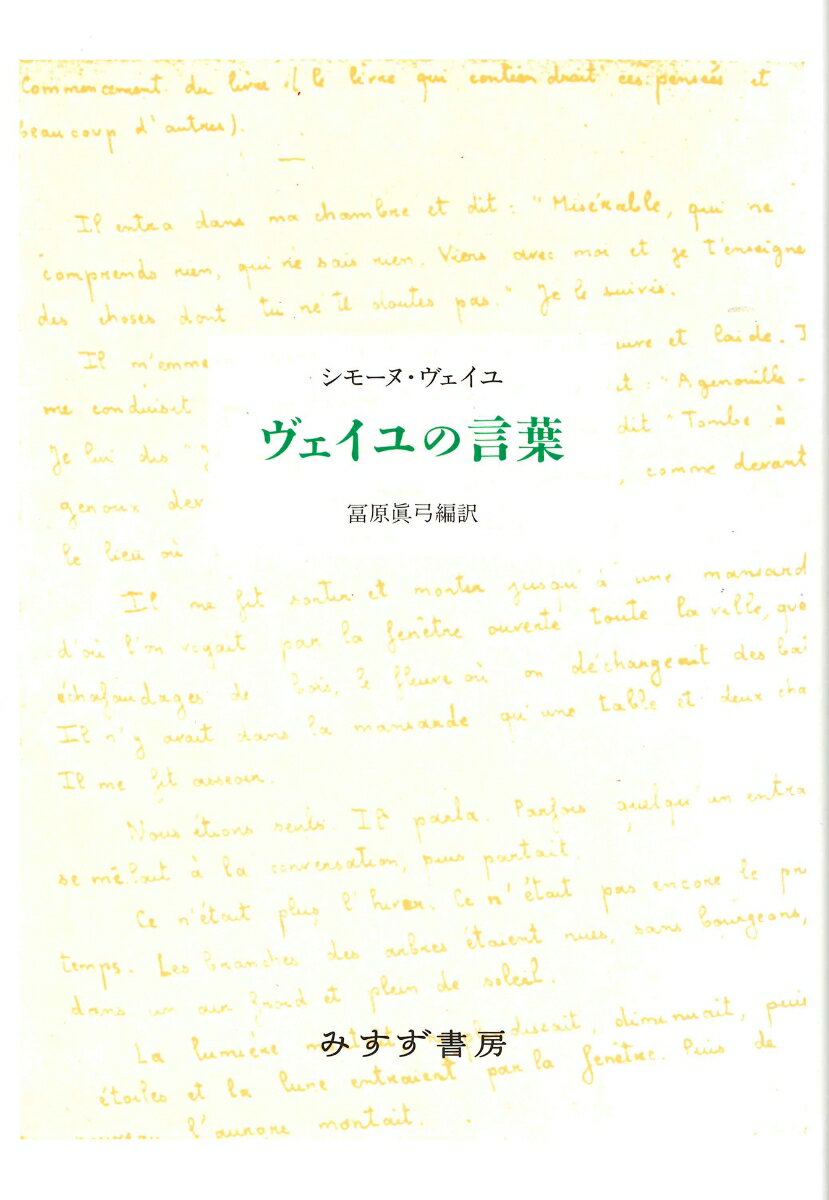 Commencement du livre (le livre qui contiendrait ces pensées et
beaucoup d'autres).
Il entra dans ma chambre et dit : "Misérable, qui ne
comprends rien, qui ne sais rien. Viens avec moi et je t'enseigne
des choses dont tu ne te doutes pas." Je le suivis.
Il m'emme
uvre et laide. I
シモーヌ・ヴェイユ
me conduisit
it : "Agenouille-
ヴェイユの言葉
Je lui dis "J
dit "Tombe à
genoux dev
, comme devant
冨原眞弓編訳
le lieu où
Il me fit sortir et monter jusqu'à une mansard
d'où l'on voyait par la fenêtre ouverte toute la ville, que
échafaudages de bois, le fleuve où on déchargeait des ba
Il n'y avait dans la mansarde qu'une table et deux cha
Il me fit asseoir.
Nous étions seuls. Il parla. Parfois quelqu'un entra
se mêlait à la conversation, puis partait.
Ce n'était plus l'hiver. Ce n'était pas encore le pr
temps. Les branches des arbres étaient nues, sans bourgeons,
dans un air froid et plein de soleil.
La lumière diminuait, puis
みすず書房
étoiles et la lune entraient par la fenêtre. Puis de
l'aurore montait.